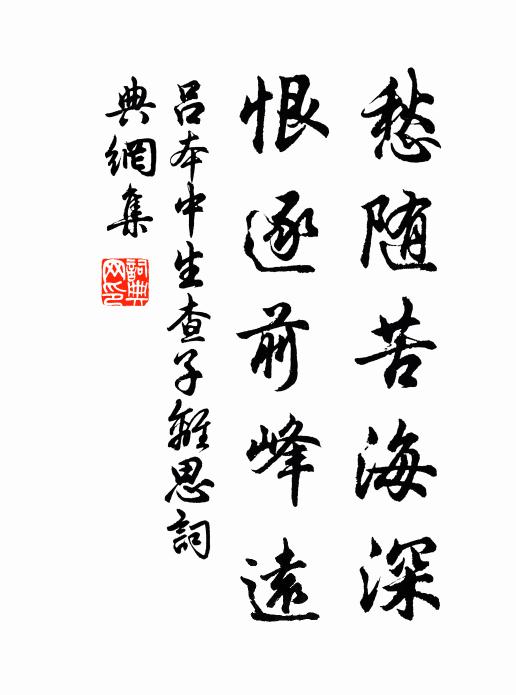 愁随苦海深
恨逐前峰遠
吕本中生查子離思詞
典網集
詞典
网印